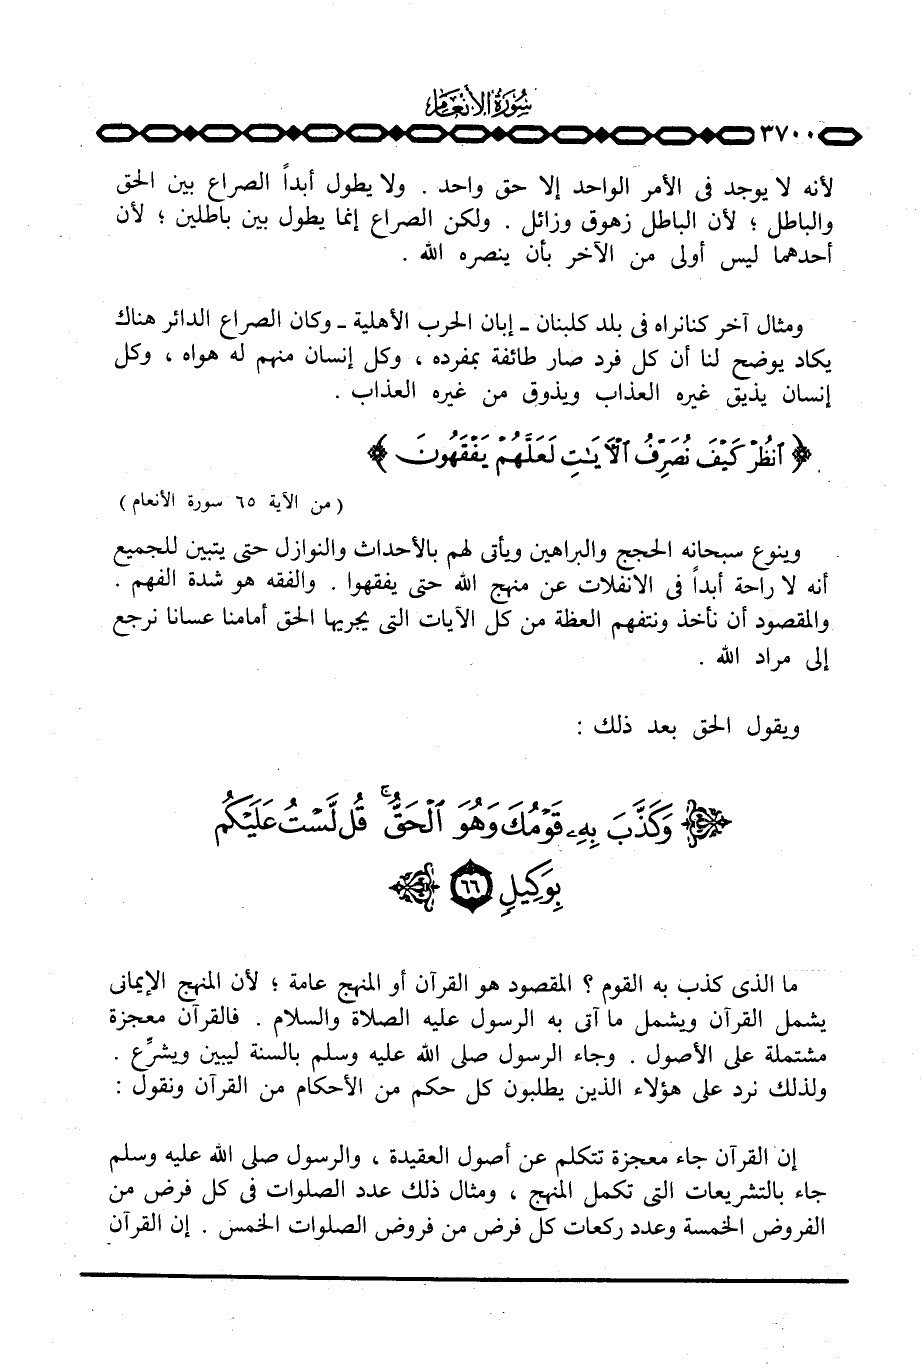 سُورَةُ الأَنْعَام
٣٧٠٠
لأنه لا يوجد فى الأمر الواحد إلا حق واحد . ولا يطول أبداً الصراع بين الحق
والباطل ؛ لأن الباطل زهوق وزائل . ولكن الصراع إنما يطول بين باطلين ؛ لأن
أحدهما ليس أولى من الآخر بأن ينصره الله .
ومثال آخر كنا نراه فى بلد كلبنان ـ إبان الحرب الأهلية ـ وكان الصراع الدائر هناك
يكاد يوضح لنا أن كل فرد صار طائفة بمفرده ، وكل إنسان منهم له هواه ، وكل
إنسان يذيق غيره العذاب ويذوق من غيره العذاب .
﴿ ٱنظُرْ كَيْفَ نُصَرِّفُ ٱلْآيَـٰتِ لَعَلَّهُمْ يَفْقَهُونَ ﴾
( من الآية ٦٥ سورة الأنعام )
وينوع سبحانه الحجج والبراهين ويأتى لهم بالأحداث والنوازل حتى يتبين للجميع
أنه لا راحة أبداً فى الانفلات عن منهج الله حتى يفقهوا . والفقه هو شدة الفهم .
والمقصود أن نأخذ ونتفهم العظة من كل الآيات التى يجريها الحق أمامنا عسانا نرجع
إلى مراد الله .
ويقول الحق بعد ذلك :
﴿ وَكَذَّبَ بِهِۦ قَوْمُكَ وَهُوَ ٱلْحَقُّ ۚ قُل لَّسْتُ عَلَيْكُم
بِوَكِيلٍ ٦٦ ﴾
ما الذى كذب به القوم ؟ المقصود هو القرآن أو المنهج عامة ؛ لأن المنهج الإيمانى
يشمل القرآن ويشمل ما آتى به الرسول عليه الصلاة والسلام . فالقرآن معجزة
مشتملة على الأصول . وجاء الرسول صلى الله عليه وسلم بالسنة ليبين ويشرِّع .
ولذلك نرد على هؤلاء الذين يطلبون كل حكم من الأحكام من القرآن ونقول :
إن القرآن جاء معجزة تتكلم عن أصول العقيدة ، والرسول صلى الله عليه وسلم
جاء بالتشريعات التى تكمل المنهج ، ومثال ذلك عدد الصلوات فى كل فرض من
الفروض الخمسة وعدد ركعات كل فرض من فروض الصلوات الخمس . إن القرآن